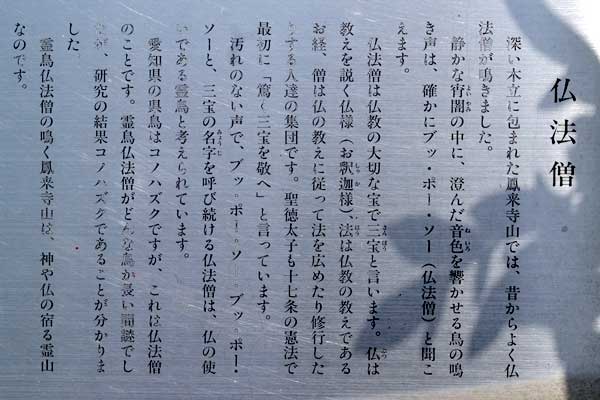 仏法僧
深い木立に包まれた鳳来寺山では、昔からよく仏
法僧が鳴きました。
静かな宵闇の中に、澄んだ音色を響かせる鳥の鳴
き声は、確かにブッ・ポー・ソー(仏法僧)と聞こ
えます。
仏法僧は仏教の大切な宝で三宝と言います。仏は
教えを説く仏様(お釈迦様)、法は仏教の教えである
お経、僧は仏の教えに従って法を広めたり修行した
りする人達の集団です。聖徳太子も十七条の憲法で
最初に「篤く三宝を敬へ」と言っています。
汚れのない声で、ブッ。ポー。ソー ブッ。ポー・
ソーと、三宝の名字を呼び続ける仏法僧は、仏の使
いである霊鳥と考えられています。
愛知県の県鳥はコノハズクですが、これは仏法僧
のことです。霊鳥仏法僧がどんな鳥か長い間謎でし
たが、研究の結果コノハズクであることが分かりま
した
霊鳥仏法僧の鳴く鳳来寺山は、神や仏の宿る霊山
なのです。